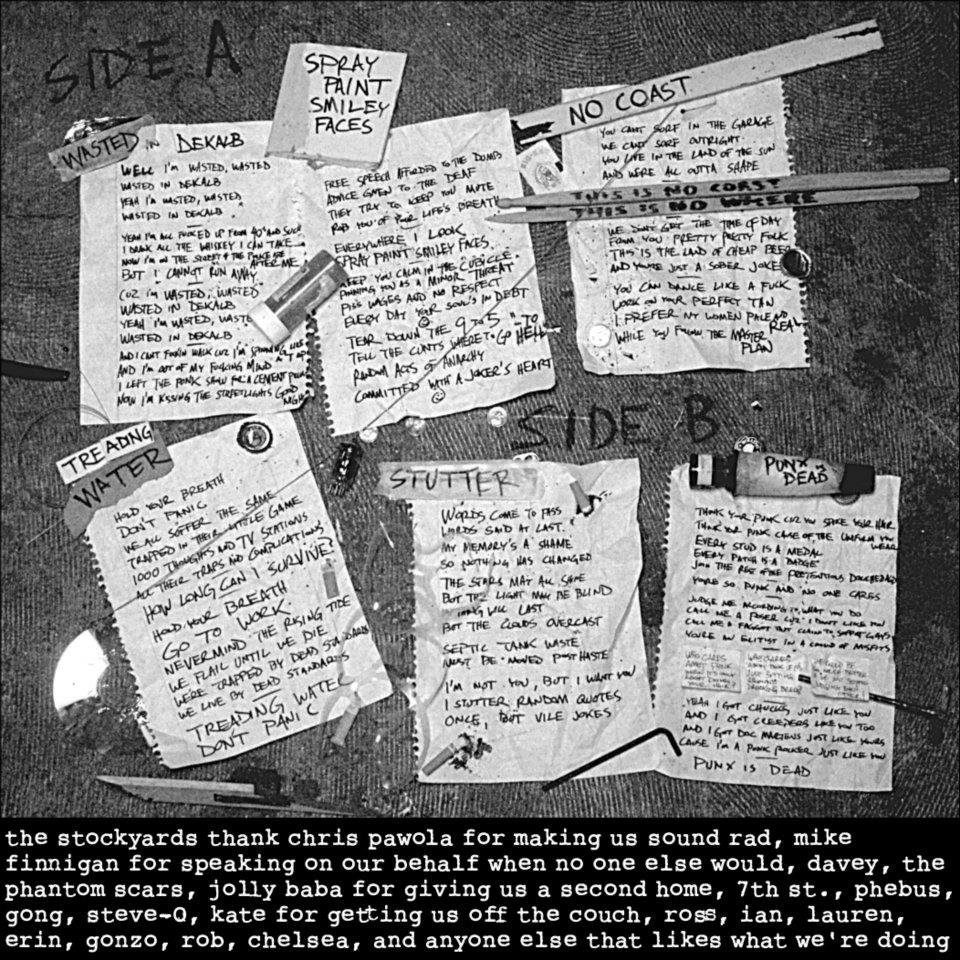 SIDE A
WASTED IN DEKALB
WELL I'M WASTED, WASTED
WASTED IN DEKALB
YEAH I'M WASTED, WASTED
WASTED IN DEKALB
YEAH I'M ALL FUCKED UP FROM 40'S AND SUCH
I DRANK ALL THE WHISKEY I CAN TAKE
NOW I'M ON THE STREET & THE POLICE ARE
AFTER ME
BUT I CANNOT RUN AWAY
CUZ I'M WASTED, WASTED
WASTED IN DEKALB
YEAH I'M WASTED, WASTE
WASTED IN DEKALB
AND I CAN'T FUCKIN WALK CUZ I'M SPINNING LIKE
AND I'M OUT OF MY FUCKING MIND
I LEFT THE PUNK SHOW FOR A CEMENT
NOW I'M KISSING THE STREETLIGHTS GOOD
NIGHT
SPRAY
PAINT
SMILEY
FACES
FREE SPEECH AFFORDED TO THE DUMB
ADVICE GIVEN TO THE DEAF
THEY TRY TO KEEP YOU MUTE
ROB YOU OF YOUR LIFE'S BREATH
EVERYWHERE I LOOK
SPRAY PAINT SMILEY FACES
KEEP YOU CALM IN THE CUBICLE
PINNING YOU AS A MINOR THREAT
PISS WAGES AND NO RESPECT
EVERY DAY YOUR SOUL'S IN DEBT
TEAR DOWN THE 9 TO 5
TELL THE CUNTS WHERE TO GO TO HELL
RANDOM ACTS OF ANARCHY
COMMITTED WITH A JOKER'S HEART
NO COAST
YOU CANT SURF IN THE GARAGE
WE CANT SURF OUTRIGHT
YOU LIVE IN THE LAND OF THE SUN
AND WE'RE ALL OUTTA SHAPE
THIS IS NO COAST
THIS IS NO WHERE
WE DON'T GET THE TIME OF DAY
FROM YOU PRETTY PRETTY FOLK
THIS IS THE LAND OF CHEAP BEER
AND YOU'RE JUST A SOBER JOKE
YOU CAN DANCE LIKE A FUCK
WORK ON YOUR PERFECT TAN
I PREFER MY WOMEN PALE AND REAL
WHILE YOU FOLLOW THE MASTER
PLAN
SIDE B
TREADING
WATER
HOLD YOUR BREATH
DON'T PANIC
WE ALL SUFFER THE SAME
TRAPPED IN THEIR LITTLE GAME
1000 THOUGHTS AND TV STATIONS
ALL THEIR TRAPS AND COMPLICATIONS
HOW LONG CAN I SURVIVE?
HOLD YOUR BREATH
GO TO WORK
NEVERMIND THE RISING TIDE
WE FLAIL UNTIL WE DIE
WERE TRAPPED BY DEAD
WE LIVE BY DEAD STANDARDS
TREADING WATER
DON'T PANIC
STUTTER
WORDS COME TO PASS
WORDS SAID AT LAST
MY MEMORY'S A SHAME
SO NOTHING HAS CHANGED
THE STARS MAY ALL SHINE
BUT THE LIGHT MAY BE BLIND
WILL LAST
BUT THE CLOUDS OVERCAST
SEPTIC TANK WASTE
MUST BE MOVED POST HASTE
I'M NOT YOU, BUT I WANT YOU
I STUTTER RANDOM QUOTES
ONCE, BUT VILE JOKES
PUNX IS
DEAD
THINK YOUR PUNK CUZ YOU SPIKE YOUR HAIR
THINK YOUR PUNK CASE OF THE UNIFORM YOU
WEAR
EVERY STUD IS A MEDAL
EVERY PATCH IS A BADGE
JOIN THE REST OF THE PRETENTIOUS DOUCHEBAGS
YOU'RE SO PUNK AND NO ONE CARES
JUDGE ME ACCORDING TO WHAT YOU DO
CALL ME A POSER CUZ I DON'T LIKE YOU
CALL ME A FAGGOT BUT CLAIM TO SUPPORT GAYS
YOU'RE AN ELITIST IN A CROWD OF MISFITS
WHO CARES
YEAH I GOT CHUCKS JUST LIKE YOU
AND I GOT CREEPERS LIKE YOU TOO
AND I GOT DOC MARTENS JUST LIKE YOURS
CAUSE I'M A PUNK ROCKER JUST LIKE YOU
PUNX IS DEAD
the stockyards thank chris pawola for making us sound rad, mike
finnigan for speaking on our behalf when no one else would, davey, the
phantom scars, jolly baba for giving us a second home, 7th st., phebus,
gong, steve-O, kate for getting us off the couch, ross, ian, lauren,
erin, gonzo, rob, chelsea, and anyone else that likes what we're doing